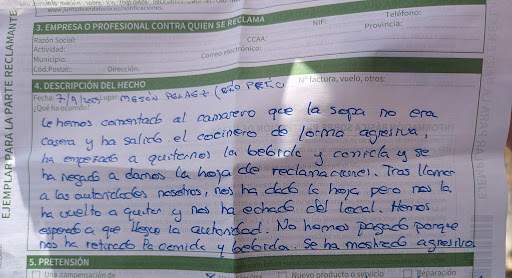 www.juntadeandalucia.es/notificaciones.
3. EMPRESA O PROFESIONAL CONTRA QUIEN SE RECLAMA
Razón Social: NIF: Teléfono:
Actividad: CCAA: Provincia:
Municipio: Correo electrónico:
Cod.Postal: Dirección:
4. DESCRIPCIÓN DEL HECHO
Fecha: Lugar: MESON Nº factura, vuelo, otros:
¿Qué ha ocurrido?
Le hemos comentado al camarero que la sopa no era
casera y ha salido el cocinero de forma agresiva,
ha empezado a quitarnos la bebida y comida y se
ha negado a darnos la hoja de reclamaciones. Tras llamar
a las autoridades nosotros, nos ha dado la hoja pero nos la
ha vuelto a quitar y nos ha echado del local. Hemos
esperado a que llegue la autoridad. No hemos pagado porque
nos ha retirado la comida y bebida. Se ha mostrado agresivo
5. PRETENSIÓN
Una compensación de Nuevo producto o servicio Reparación
EJEMPLAR PARA LA PARTE RECLAMANTE